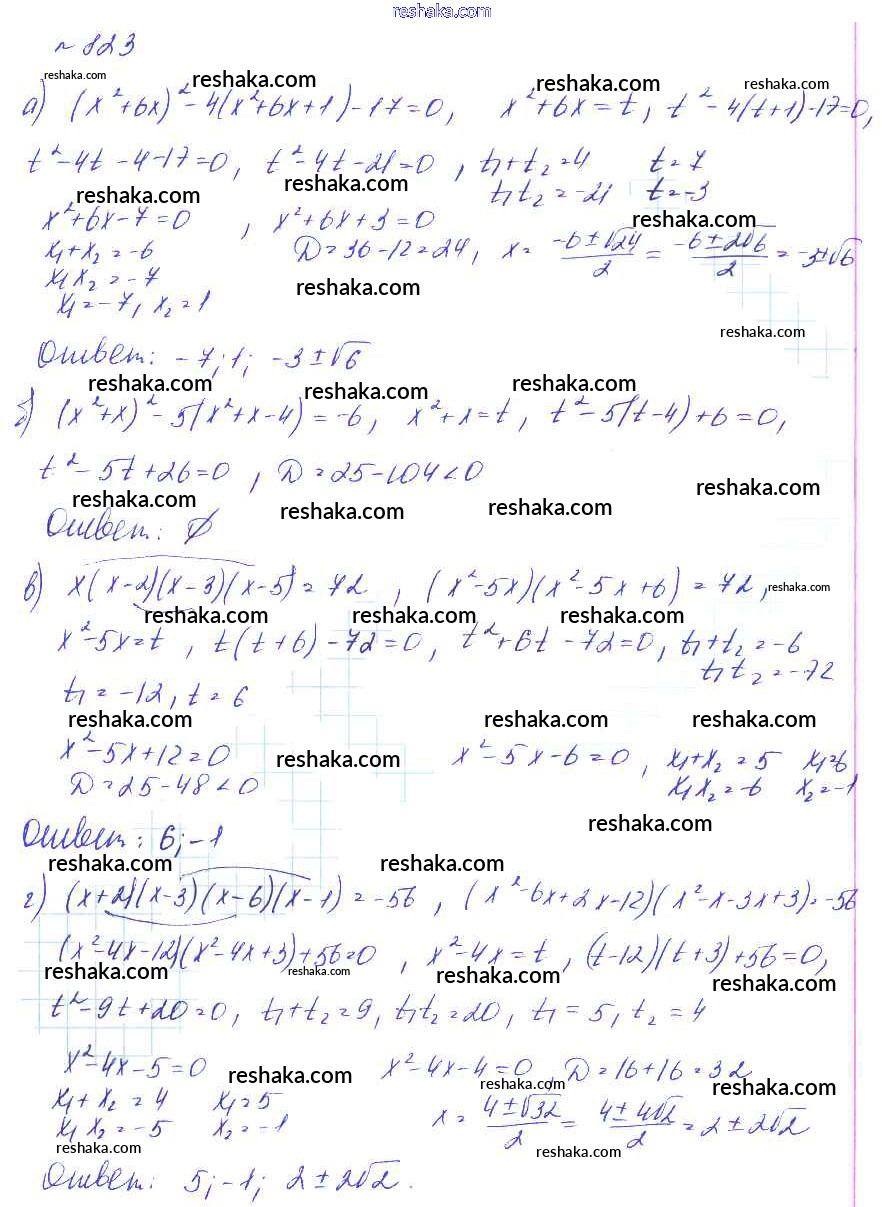 reshaka.com
№ 823
reshaka.com reshaka.com reshaka.com reshaka.com
а) (x²+6x)²-4(x²+6x+1)-17=0, x²+6x=t, t²-4(t+1)-17=0,
t²-4t-4-17=0, t²-4t-21=0, t₁+t₂=4 t=7
reshaka.com reshaka.com t₁t₂=-21 t=-3
x²+6x-7=0, x²+6x+3=0 reshaka.com
x₁+x₂=-6 D=36-12=24, x=(-6±√24)/2=(-6±2√6)/2=-3±√6
x₁x₂=-7 reshaka.com
x₁=-7, x₂=1
reshaka.com
Ответ: -7; 1; -3±√6
reshaka.com reshaka.com reshaka.com
б) (x²+x)²-5(x²+x-4)=-6, x²+x=t, t²-5(t-4)+6=0,
t²-5t+26=0, D=25-104<0
reshaka.com reshaka.com reshaka.com reshaka.com
Ответ: ∅
в) x(x-2)(x-3)(x-5)=72, (x²-5x)(x²-5x+6)=72, reshaka.com
reshaka.com reshaka.com reshaka.com
x²-5x=t, t(t+6)-72=0, t²+6t-72=0, t₁+t₂=-6
t₁t₂=-72
t₁=-12, t=6
reshaka.com reshaka.com reshaka.com
x²-5x+12=0 reshaka.com x²-5x-6=0, x₁+x₂=5 x₁=6
D=25-48<0 x₁x₂=-6 x₂=-1
reshaka.com
Ответ: 6; -1
reshaka.com reshaka.com
г) (x+2)(x-3)(x-6)(x-1)=-56, (x²-6x+2x-12)(x²-x-3x+3)=-56
(x²-4x-12)(x²-4x+3)+56=0, x²-4x=t, (t-12)(t+3)+56=0,
reshaka.com reshaka.com reshaka.com reshaka.com
t²-9t+20=0, t₁+t₂=9, t₁t₂=20, t₁=5, t₂=4
x²-4x-5=0 reshaka.com x²-4x-4=0, D=16+16=32
x₁+x₂=4 x₁=5 reshaka.com reshaka.com
x₁x₂=-5 x₂=-1 x=(4±√32)/2=(4±4√2)/2=2±2√2
reshaka.com reshaka.com
Ответ: 5; -1; 2±2√2.